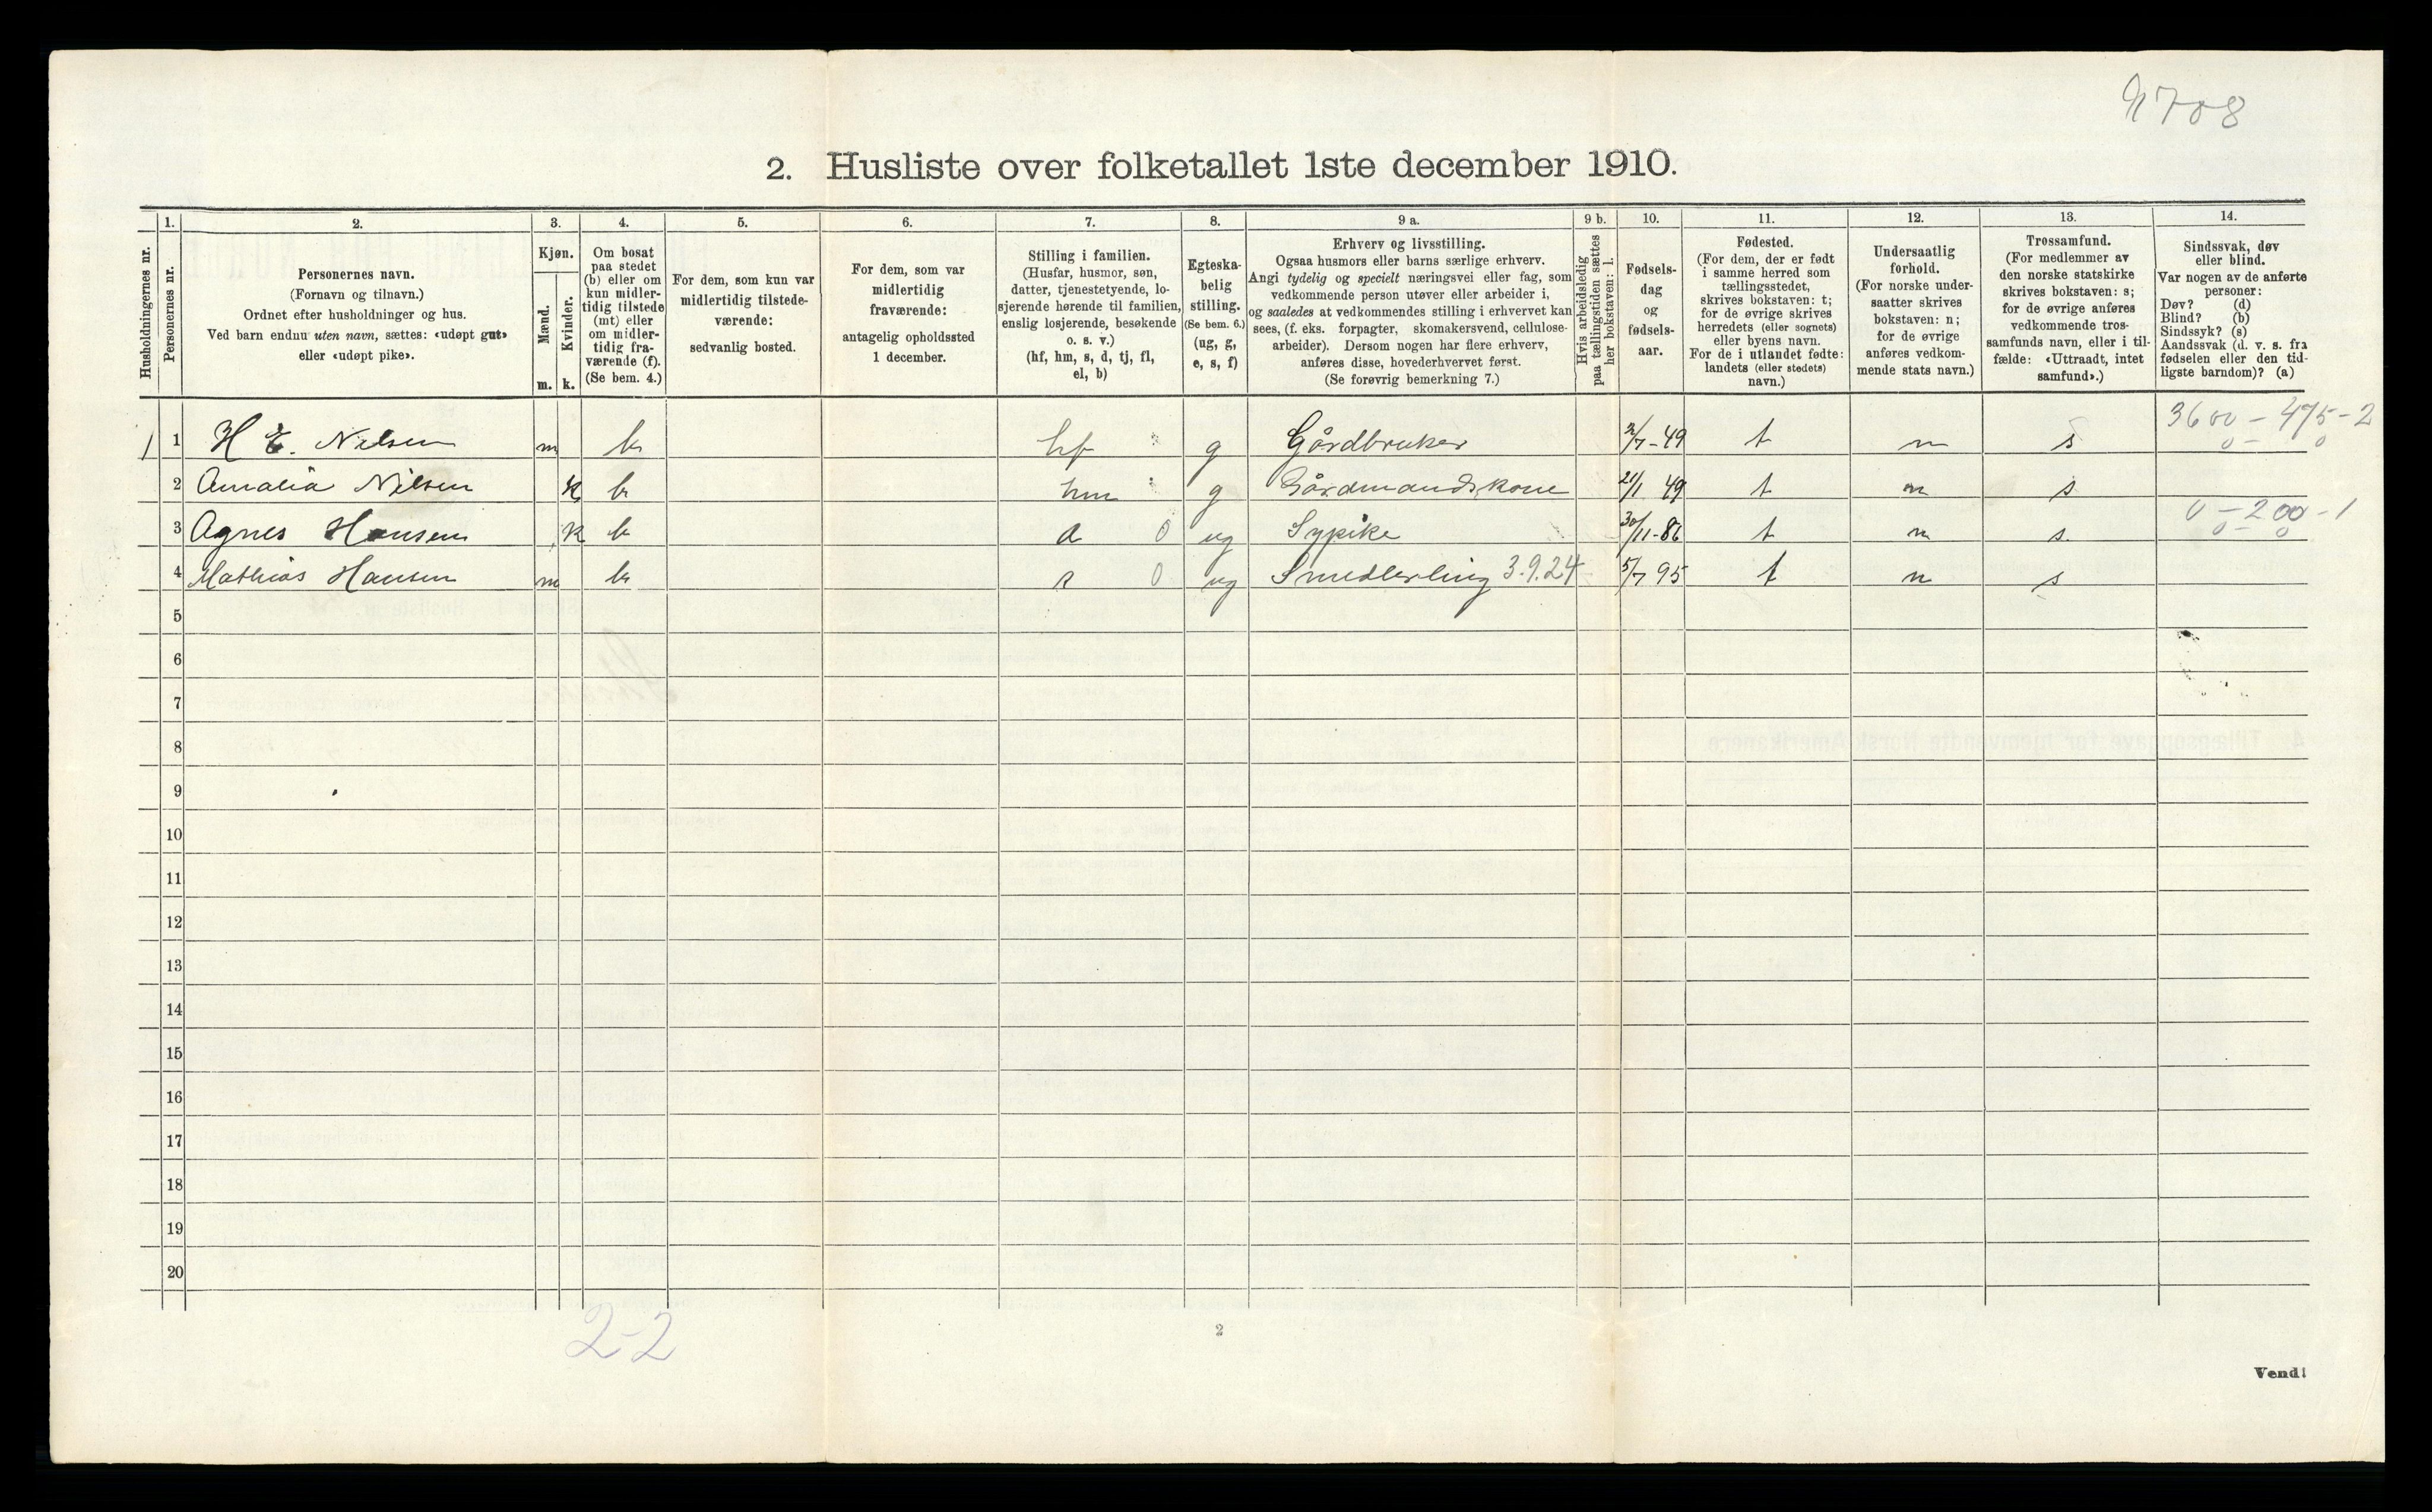 9708
2. Husliste over folketallet 1ste december 1910.
Husholdningernes nr.
1.
Personernes nr.
2.
Personernes navn.
(Fornavn og tilnavn.)
Ordnet efter husholdninger og hus.
Ved barn endnu uten navn, sættes: «udøpt gut»
eller «udøpt pike».
3.
Kjøn.
Mænd.
m.
Kvinder.
k.
4.
Om bosat
paa stedet
(b) eller om
kun midler-
tidig tilstede
(mt) eller
om midler-
tidig fra-
værende (f).
(Se bem. 4.)
5.
For dem, som kun var
midlertidig tilstede-
værende:
sedvanlig bosted.
6.
For dem, som var
midlertidig
fraværende:
antagelig opholdssted
1 december.
7.
Stilling i familien.
(Husfar, husmor, søn,
datter, tjenestetyende, lo-
sjerende hørende til familien,
enslig losjerende, besøkende
o. s. v.)
(hf, hm, s, d, tj, fl,
el, b)
8.
Egteska-
belig
stilling.
(Se bem. 6.)
(ug, g,
e, s, f)
9 a.
Erhverv og livsstilling.
Ogsaa husmors eller barns særlige erhverv.
Angi tydelig og specielt næringsvei eller fag, som
vedkommende person utøver eller arbeider i,
og saaledes at vedkommendes stilling i erhvervet kan
sees, (f. eks. forpagter, skomakersvend, cellulose-
arbeider). Dersom nogen har flere erhverv,
anføres disse, hovederhvervet først.
(Se forøvrig bemerkning 7.)
9 b.
Hvis arbeidsledig
paa tællingstiden sættes
her bokstaven: l.
10.
Fødsels-
dag
og
fødsels-
aar.
11.
Fødested.
(For dem, der er født
i samme herred som
tællingsstedet,
skrives bokstaven: t;
for de øvrige skrives
herredets (eller sognets)
eller byens navn.
For de i utlandet fødte:
landets (eller stedets)
navn.)
12.
Undersaatlig
forhold.
(For norske under-
saatter skrives
bokstaven: n;
for de øvrige
anføres vedkom-
mende stats navn.)
13.
Trossamfund.
(For medlemmer av
den norske statskirke
skrives bokstaven: s;
for de øvrige anføres
vedkommende tros-
samfunds navn, eller i til-
fælde: «Uttraadt, intet
samfund».)
14.
Sindssvak, døv
eller blind.
Var nogen av de anførte
personer:
Døv? (d)
Blind? (b)
Sindssyk? (s)
Aandssvak (d. v. s. fra
fødselen eller den tid-
ligste barndom)? (a)
3600 - 475 - 2
1 1 H E. Nilsen m b hf g Gårdbruker 2/7-49 t n s 0 - 0
2 Amalia Nilsen k b hm g Gårdmandskone 21/1 49 t n s
0 - 200 - 1
3 Agnes Hansen k b d 0 ug Sypike 30/11-86 t n s. 0 - 0
4 Mathias Hansen m b s 0 ug Smedlerling 3.9.24 5/7 95 t n s
5
6
7
8
9
10
11
12
13
14
15
16
17
18
19
20
2-2
2
Vend!